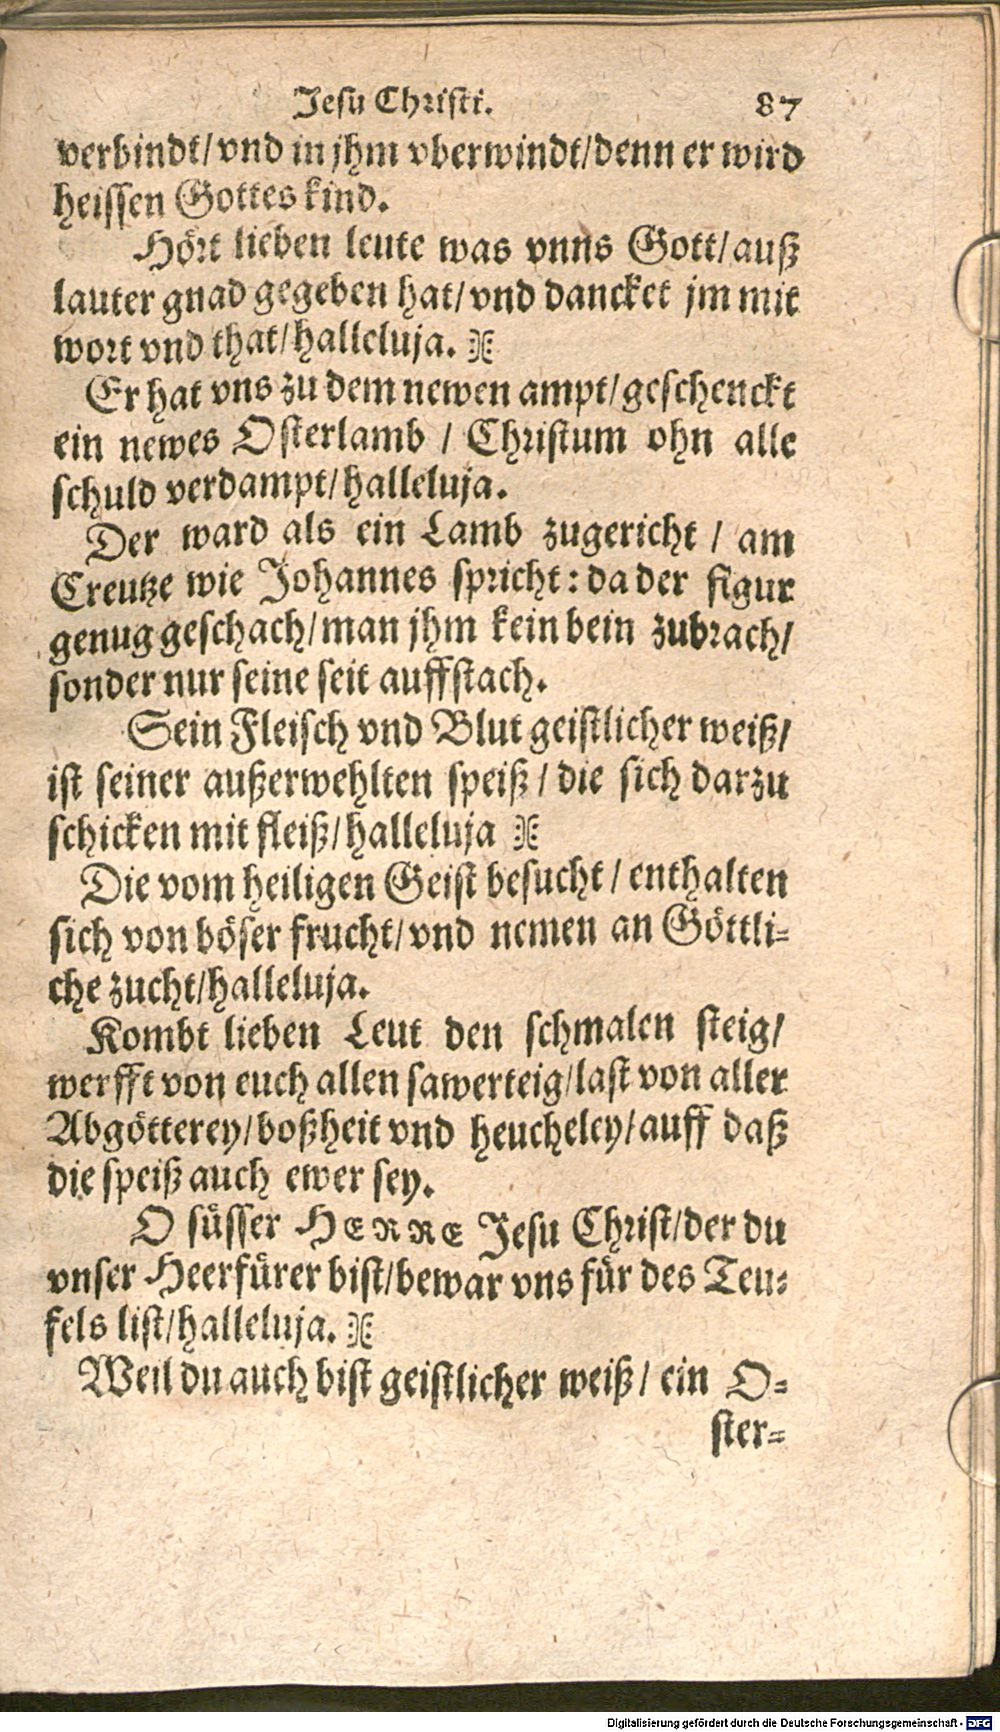 Jesu Christi. 87
verbindt/vnd in jhm vberwindt/denn er wird
heissen Gottes kind.
Hört lieben leute was vnns Gott/auß
lauter gnad gegeben hat/vnd dancket jm mit
wort vnd that/halleluja.
Er hat vns zu dem newen ampt/geschenckt
ein newes Osterlamb / Christum ohn alle
schuld verdampt/halleluja.
Der ward als ein Lamb zugericht / am
Creutze wie Johannes spricht: da der figur
genug geschach/man jhm kein bein zubrach/
sonder nur seine seit auffstach.
Sein Fleisch vnd Blut geistlicher weiß/
ist seiner außerwehlten speiß / die sich darzu
schicken mit fleiß/halleluja
Die vom heiligen Geist besucht / enthalten
sich von böser frucht/vnd nemen an Göttli-
che zucht/halleluja.
Kombt lieben Leut den schmalen steig/
werfft von euch allen sawerteig/last von aller
Abgötterey/boßheit vnd heucheley/auff daß
die speiß auch ewer sey.
O süsser HERRE Jesu Christ/der du
vnser Heerfürer bist/bewar vns für des Teu-
fels list/halleluja.
Weil du auch bist geistlicher weiß/ ein O-
ster-
Digitalisierung gefördert durch die Deutsche Forschungsgemeinschaft - DFG